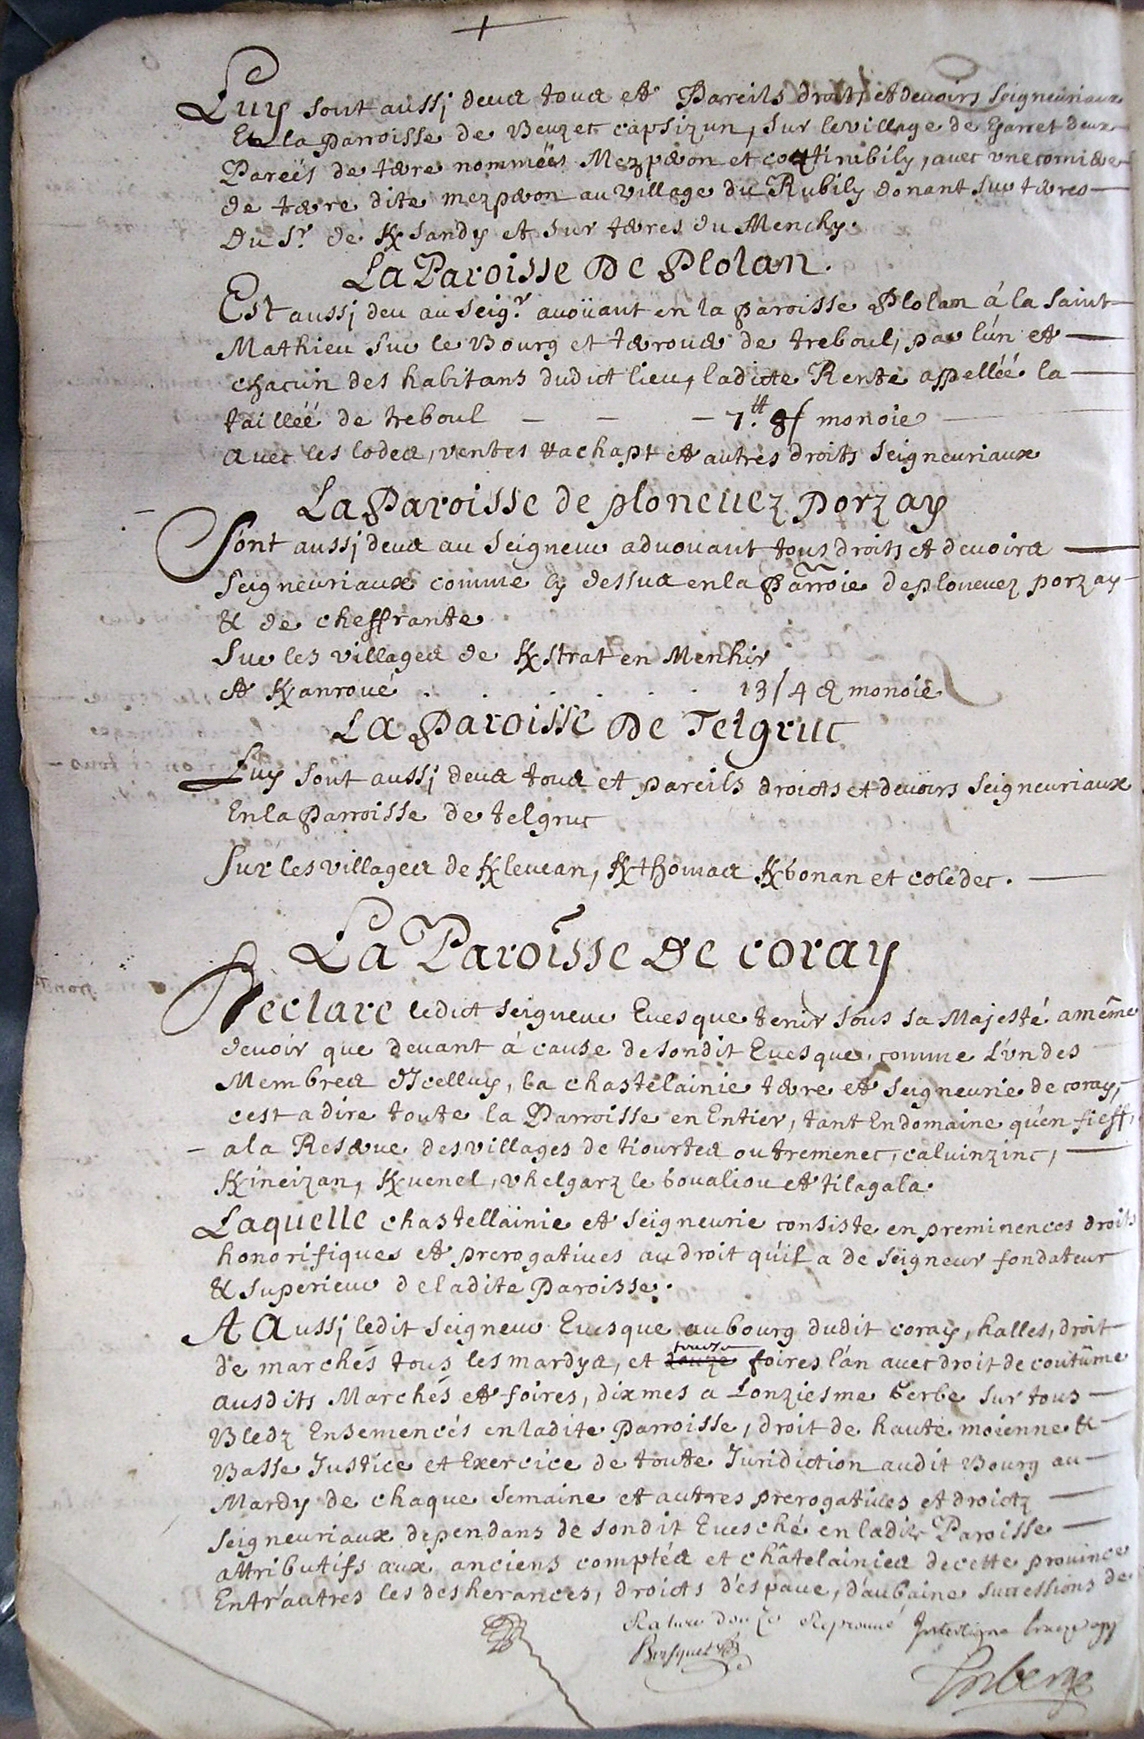 Luy sont aussj deus tous et Pareils droits et devoirs seigneuriaux
En la Parroisse de Beuzec capsizun, sur le village de deux
Pareïs de terre nommeës Mezpeon et , avec une corniere
de terre dite mezpeon au village du Rubily donant sur terres
Du Sr. de Ꝃsandy et sur terres du Menchy.
La Paroisse De Plolan.
Est aussj deu au seigr. avoüant en la paroisse Plolan á la saint
Mathieu sur le Bourg et terrouer de treboul, par lún et
chacun des habitans dudict lieu, ladicte Rente appelléé la
tailléé de treboul - - - 7.tt 8ſ monoie
avec les lodes, ventes rachapt et autres droits seigneuriaux
La Paroisse de ploneuez porzay
Sont aussj deus au seigneur advouant tous droits et devoirs
seigneuriaux comme cy dessus en la Parroie de ploneuez porzay
& de cheffrante
Sur les villages de Ꝃstrat en Menhir
et Ꝃanroué . . . . . . 13ſ 4 d monoie
La Paroisse De Telgruc
Luy sont aussj deus tous et pareils droicts et devoirs seigneuriaux
En la Parroisse de telgruc
Sur les villages de Ꝃleuean, Ꝃthomas Ꝃbonan et coledec.
La Paroisse De coray
Declare ledict seigneur Euesque tenir sous sa Majesté a même
devoir que devant á cause de sondit Euesque, comme L'un des
Membres d'Icelluy, la chastelainie terre et seigneurie de coray,
cest a dire toute la Parroisse en Entier, tant En domaine qúen fieff,
a la Reserve des villages de tiourtea ou tremenec, caluinzinc,
Ꝃineizan, Ꝃuenel, vhelgarz le boualiou et tilagala.
Laquelle chastellainie et seigneurie consiste en preminences droits
honorifiques et prerogatiues au droit qúil a de seigneur fondateur
& superieur de ladite Paroisse.
A Aussj ledit seigneur Euesque au bourg dudit coray, halles, droit
de marchés tous les mardys, et douze foires lán avec droit de coutûme
ausdits Marchés et foires, dixmes a Lonziesme Gerbe sur tous
Bledz Ensemencés en ladite Parroisse, droit de haute moïenne &
Basse Justice et Exercice de toute Juridiction audit Bourg au
Mardy de chaque semaine et autres prerogatiues et droictz
seigneuriaux dependans de sondit Euesché en ladite Paroisse
attributifs aux anciens comptés et châtelainies de cette prouince
Entr'autres les desherances, droicts d'espaue, d'aubaine successions de
Rature douze Reprouué Interligne